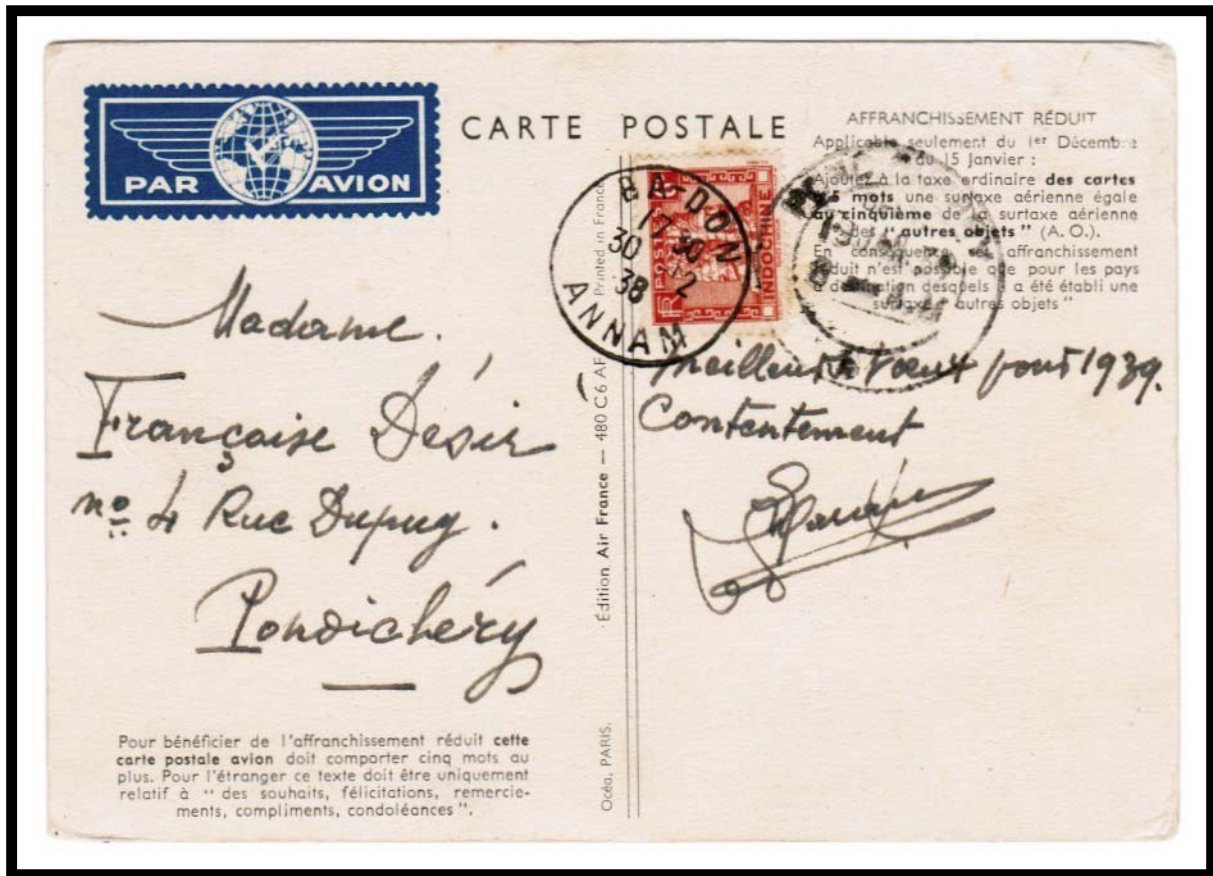 PAR AVION
CARTE POSTALE
AFFRANCHISSEMENT RÉDUIT
Applicable seulement du 1er Décembre
au 15 Janvier :
Ajoutez à la taxe ordinaire des cartes
5 mots une surtaxe aérienne égale
au cinquième de la surtaxe aérienne
des "autres objets" (A. O.).
En conséquence cet affranchissement
réduit n'est possible que pour les pays
à destination desquels il a été établi une
surtaxe "autres objets"
BA-DON
17 30
30 -12
38
ANNAM
POSTES
INDOCHINE
Madame.
Française Désir
no 4 Rue Dupuy.
Pondichéry
Meilleurs Vœux pour 1939.
Contentement
Édition Air France — 480 C 6 AF Printed in France
Océa, PARIS.
Pour bénéficier de l'affranchissement réduit cette
carte postale avion doit comporter cinq mots au
plus. Pour l'étranger ce texte doit être uniquement
relatif à " des souhaits, félicitations, remercie-
ments, compliments, condoléances ".